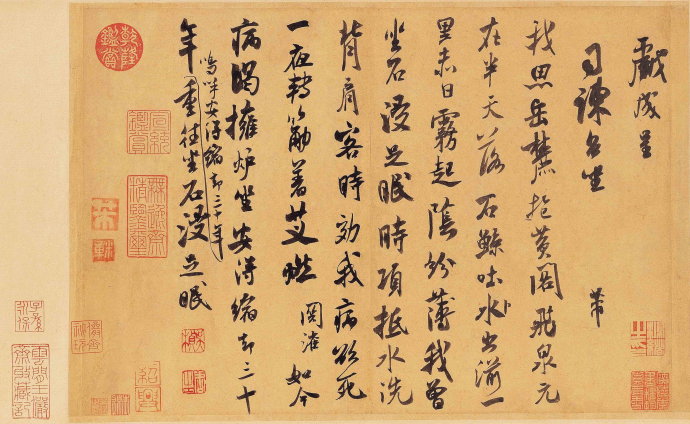 戲成呈
司諫台坐
芾
我思岳麓抱黃閣飛泉元
在半天落石鯨吐水出湔一
里赤日霧起陰紛薄我曾
坐石浸足眠時項抵水洗
背肩客時效我病欲死
一夜轉筋著艾燃關灌如今
病渴擁爐坐安得縮却三十
嗚呼安得縮却三十年
年重往坐石浸足眠
乾隆鑑賞